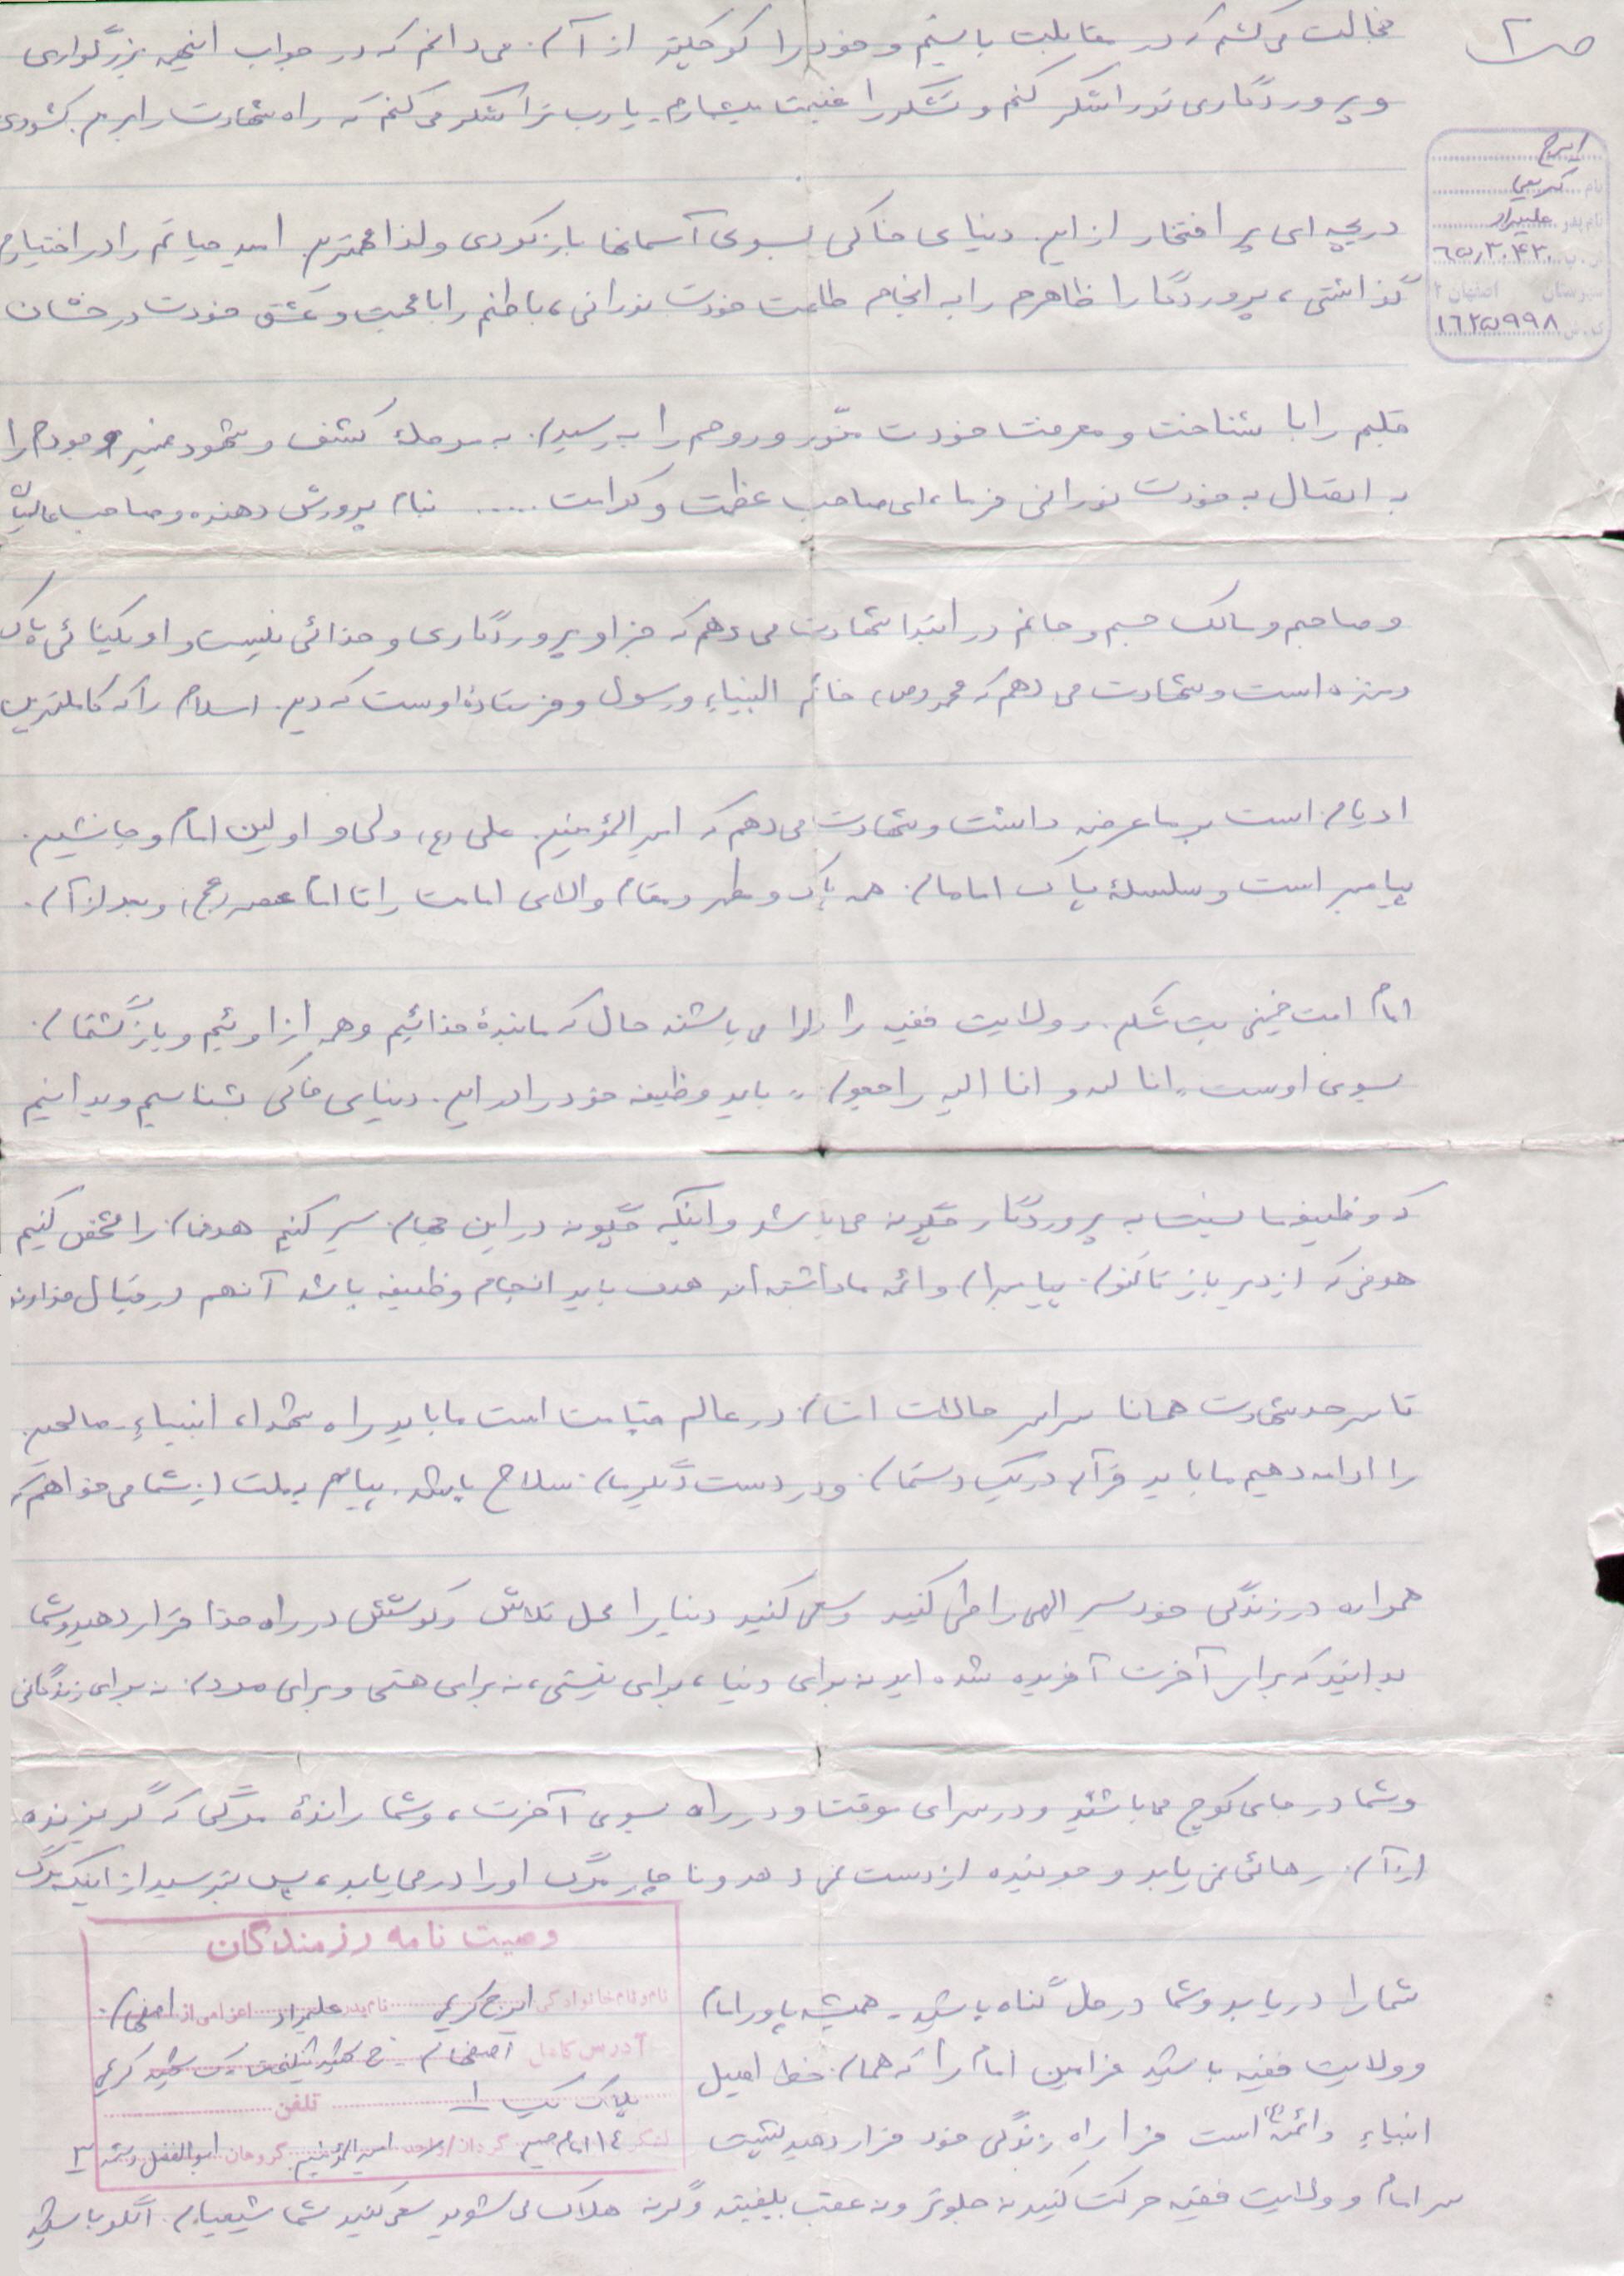 ص ۲
خجالت می کشم که در مقابلت باشیم و خود را کوچکتر از آن می دانم که در جواب اینهمه بزرگواری
و پروردگاری تو را شکر کنم و تشکر را غنیمت میشمارم. یا رب ترا شکر می کنم که راه شهادت را برم گشودی
ایرج
نام کریمی
نام پدر علیمراد
۶۵٫۳۰۴۳۰
شهرستان اصفهان ۲
۱۶۲۵۹۹۸
دریچه ای پر افتخار از این دنیای خاکی بسوی آسمانها باز نمودی ولذا بهترین امید حیاتم را در اختیارم
گذاشتی، پروردگارا ظاهرم را به انجام طاعت خودت نورانی، باطنم را با محبت و عشق خودت درخشان
قلبم را با شناخت و معرفت خودت منور و روحم را به رسیدن به مرحلهٔ کشف و شهود منیر وجودم را
به اتصال به خودت نورانی فرما، ای صاحب عظمت و کرامت ..... بنام پرورش دهنده و صاحب عالمیان
و صاحبم و مالک جسم و جانم در ابتدا شهادت می دهم که جز او پروردگاری و خدائی نیست و او یکتائی پاک
و منزه است و شهادت می دهم که محمد (ص) خاتم النبیاء و رسول و فرستادهٔ اوست که دین اسلام را که کاملترین
ادیان است بر ما عرضه داشت و شهادت می دهم که امیر المؤمنین علی (ع) ولی و اولین امام و جانشین
پیامبر است و سلسلهٔ پاک امامان همه پاک و مطهر و مقام والای امامت را تا امام عصر (عج) و بعد از آن
امام امت خمینی بت شکن و ولایت فقیه را دارا می باشند حال که ما بندهٔ خدائیم و همه از اوئیم و بازگشتمان
بسوی اوست «انا لله و انا الیه راجعون» باید وظیفه خود را در این دنیای خاکی بشناسیم و بدانیم
که وظیفهٔ ما نسبت به پروردگار چگونه می باشد و اینکه چگونه در این جهان سیر کنیم هدفمان را مشخص کنیم
هدفی که از دیر باز تاکنون پیامبران و ائمه ما داشته اند هدف باید انجام وظیفه باشد آنهم در قبال خداوند
تا سر حد شهادت همانا سراسر حالات انسان در عالم قیامت است ما باید راه شهدا، انبیاءِ صالحین
را ادامه دهیم ما باید قرآن در یک دستمان و در دست دیگرمان سلاح باشد. پیامم به ملت از شما می خواهم که
همواره در زندگی خود سیر الهی را طی کنید و سعی کنید دنیا را محل تلاش و کوشش در راه خدا قرار دهید و شما
بدانید که برای آخرت آفریده شده اید نه برای دنیا، برای نیستی، نه برای هستی و برای مردن نه برای زندگانی
و شما در جای کوچ می باشید و در سرای موقت و در راه بسوی آخرت، و شما راندهٔ مرگی که گریزنده
از آن رهائی نمی یابد و جوینده از دست نمی دهد و ناچار مرگ او را درمی یابد، پس بترسید از اینکه مرگ
شما را دریابد و شما در حال گناه باشید. همیشه یاور امام
و ولایت فقیه باشید فرامین امام را که همان خط اصیل
انبیاءِ و ائمه (ع) است فرا راه زندگی خود قرار دهید پشت
سر امام و ولایت فقیه حرکت کنید نه جلوتر و نه عقب بیفتید وگرنه هلاک می شوید سعی کنید شما شیعیان الگو باشید
وصیت نامه رزمندگان
نام و نام خانوادگی ایرج کریمی نام پدر علیمراد اعزامی از اصفهان
آدرس کامل اصفهان خ شهید کریمی
پلاک ۱ تلفن
لشکر ۱۴ امام حسین گردان/واحد امیرالمؤمنین گروهان ابوالفضل دسته ۳